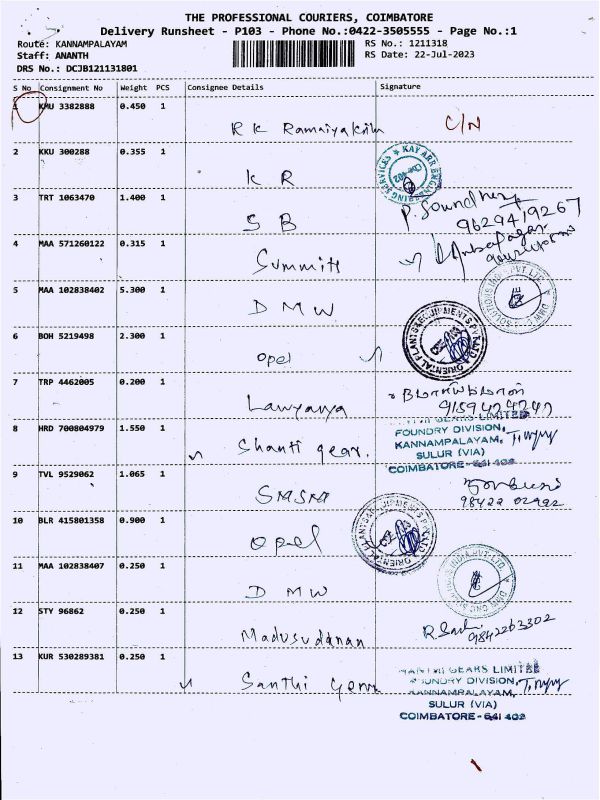 THE PROFESSIONAL COURIERS, COIMBATORE
Delivery Runsheet - P103 - Phone No.:0422-3505555 - Page No.:1
Route: KANNAMPALAYAM
RS No.: 1211318
Staff: ANANTH
RS Date: 22-Jul-2023
DRS No.: DCJB121131801
S No Consignment No Weight PCS Consignee Details Signature
1 KMU 3382888 0.450 1
R K Ramaiyakilu C/N
2 KKU 300288 0.355 1
K R
KAY ARR ENGINEERING SERVICES
3 TRT 1063470 1.400 1
S B
P. Soundher
9629419267
4 MAA 571260122 0.315 1
Summits
5 MAA 102838402 5.300 1
D M W
6 BOH 5219498 2.300 1
Opel
ORIENTAL PLANTS & EQUIPMENTS PVT LTD
7 TRP 4462005 0.200 1
Lawyanya
8 HRD 700804979 1.550 1
Shanti gear.
GEARS LIMITED
FOUNDRY DIVISION,
KANNAMPALAYAM,
SULUR (VIA)
COIMBATORE - 641 402
9 TVL 9529062 1.065 1
SMSM
98422 02992
10 BLR 415801358 0.900 1
Opel
ORIENTAL PLANTS & EQUIPMENTS PVT LTD
11 MAA 102838407 0.250 1
D M W
12 STY 96862 0.250 1
Madusudanan
9842263302
13 KUR 530289381 0.250 1
Santhi Gear
GEARS LIMITED
FOUNDRY DIVISION,
KANNAMPALAYAM,
SULUR (VIA)
COIMBATORE - 641 402